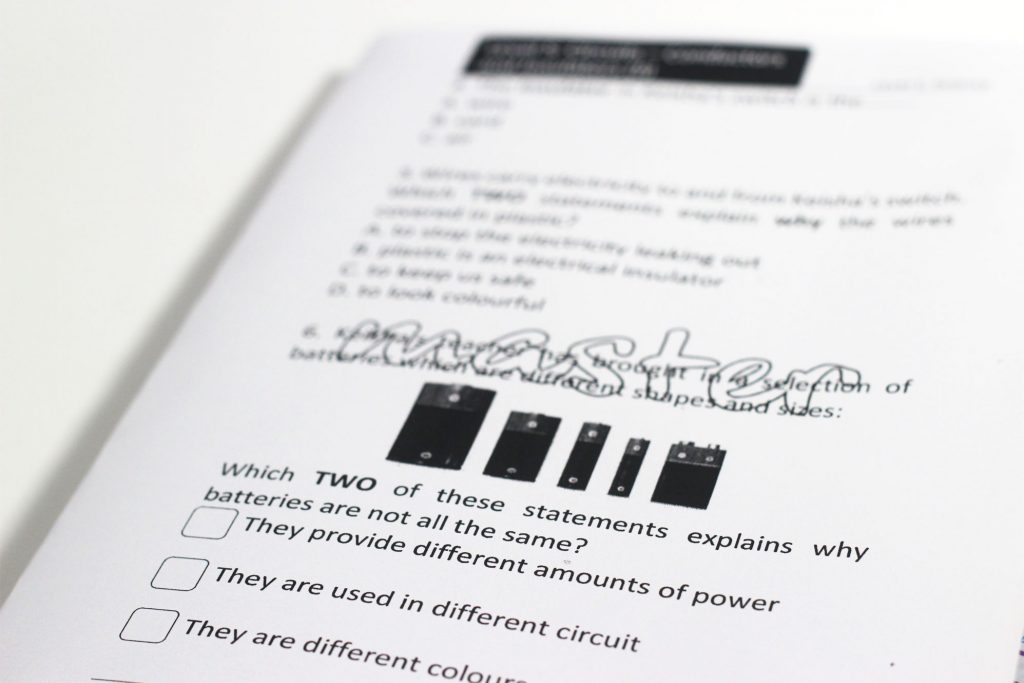 C. air
5. Wires carry electricity to and from Keisha's switch.
Which TWO statements explain why the wires
covered in plastic?
A. to stop the electricity leaking out
B. plastic is an electrical insulator
C. to keep us safe
D. to look colourful
master
6. Keisha's teacher has brought in a selection of
batteries which are different shapes and sizes:
Which TWO of these statements explains why
batteries are not all the same?
They provide different amounts of power
They are used in different circuit
They are different colours